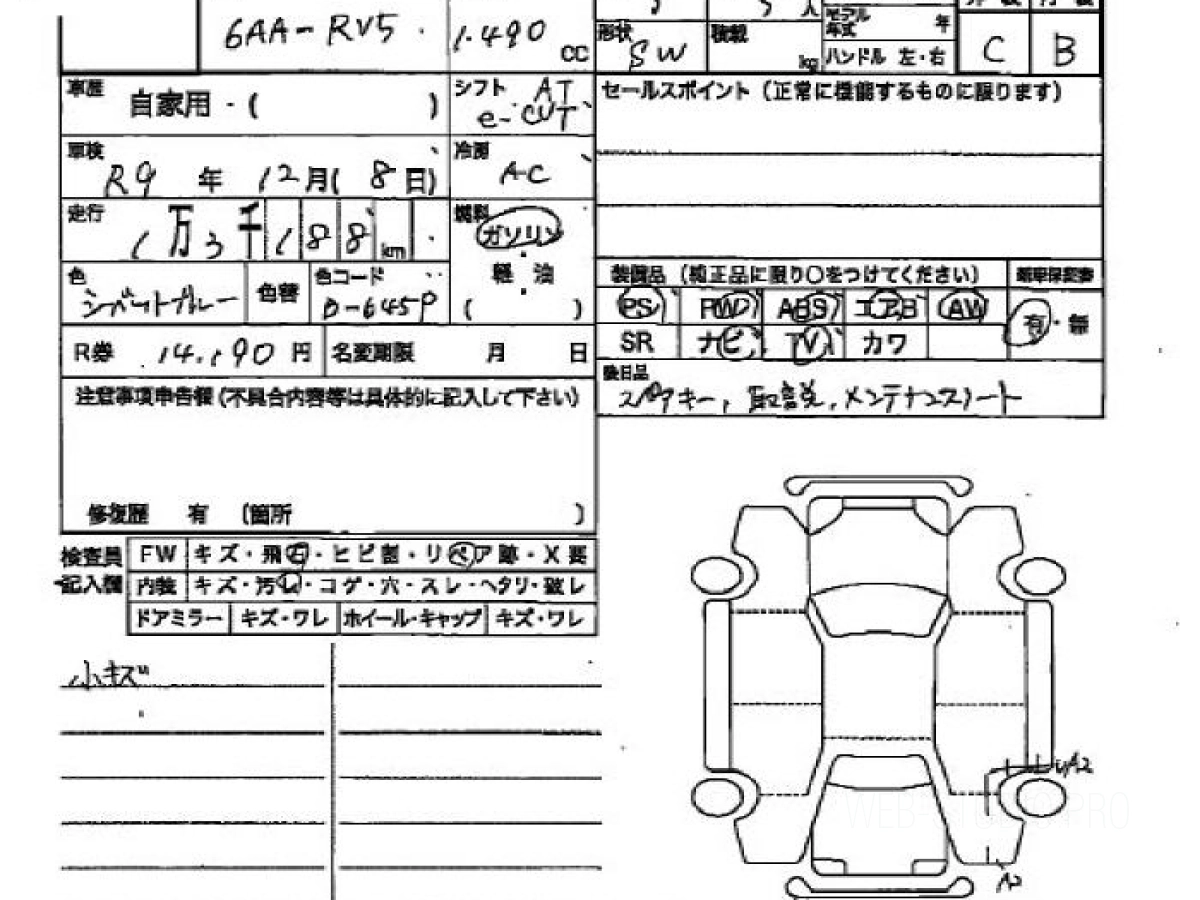 6AA-RV5
1.490 cc
形状 SW
積載 kg
モデル年式 年
ハンドル 左・右
C
B
車歴 自家用・( )
シフト AT
e-CVT
セールスポイント (正常に機能するものに限ります)
車検 R9年 12月( 8日)
冷房 AC
走行 1万3千188km
燃料 ガソリン
軽油
( )
色
色替
色コード
装備品 (純正品に限り○をつけてください)
新車保証書
PS PW ABS エアB AW
有・無
SR ナビ TV カワ
R券 14,190円
名変期限 月 日
後日品
スペアキー, 取説, メンテナンスノート
注意事項申告欄 (不具合内容等は具体的に記入して下さい)
修復歴 有 (箇所 )
検査員記入欄
FW キズ・飛石・ヒビ割・リペア跡・X要
内装 キズ・汚レ・コゲ・穴・スレ・ヘタリ・破レ
ドアミラー キズ・ワレ ホイール・キャップ キズ・ワレ
小キズ
A2
A2